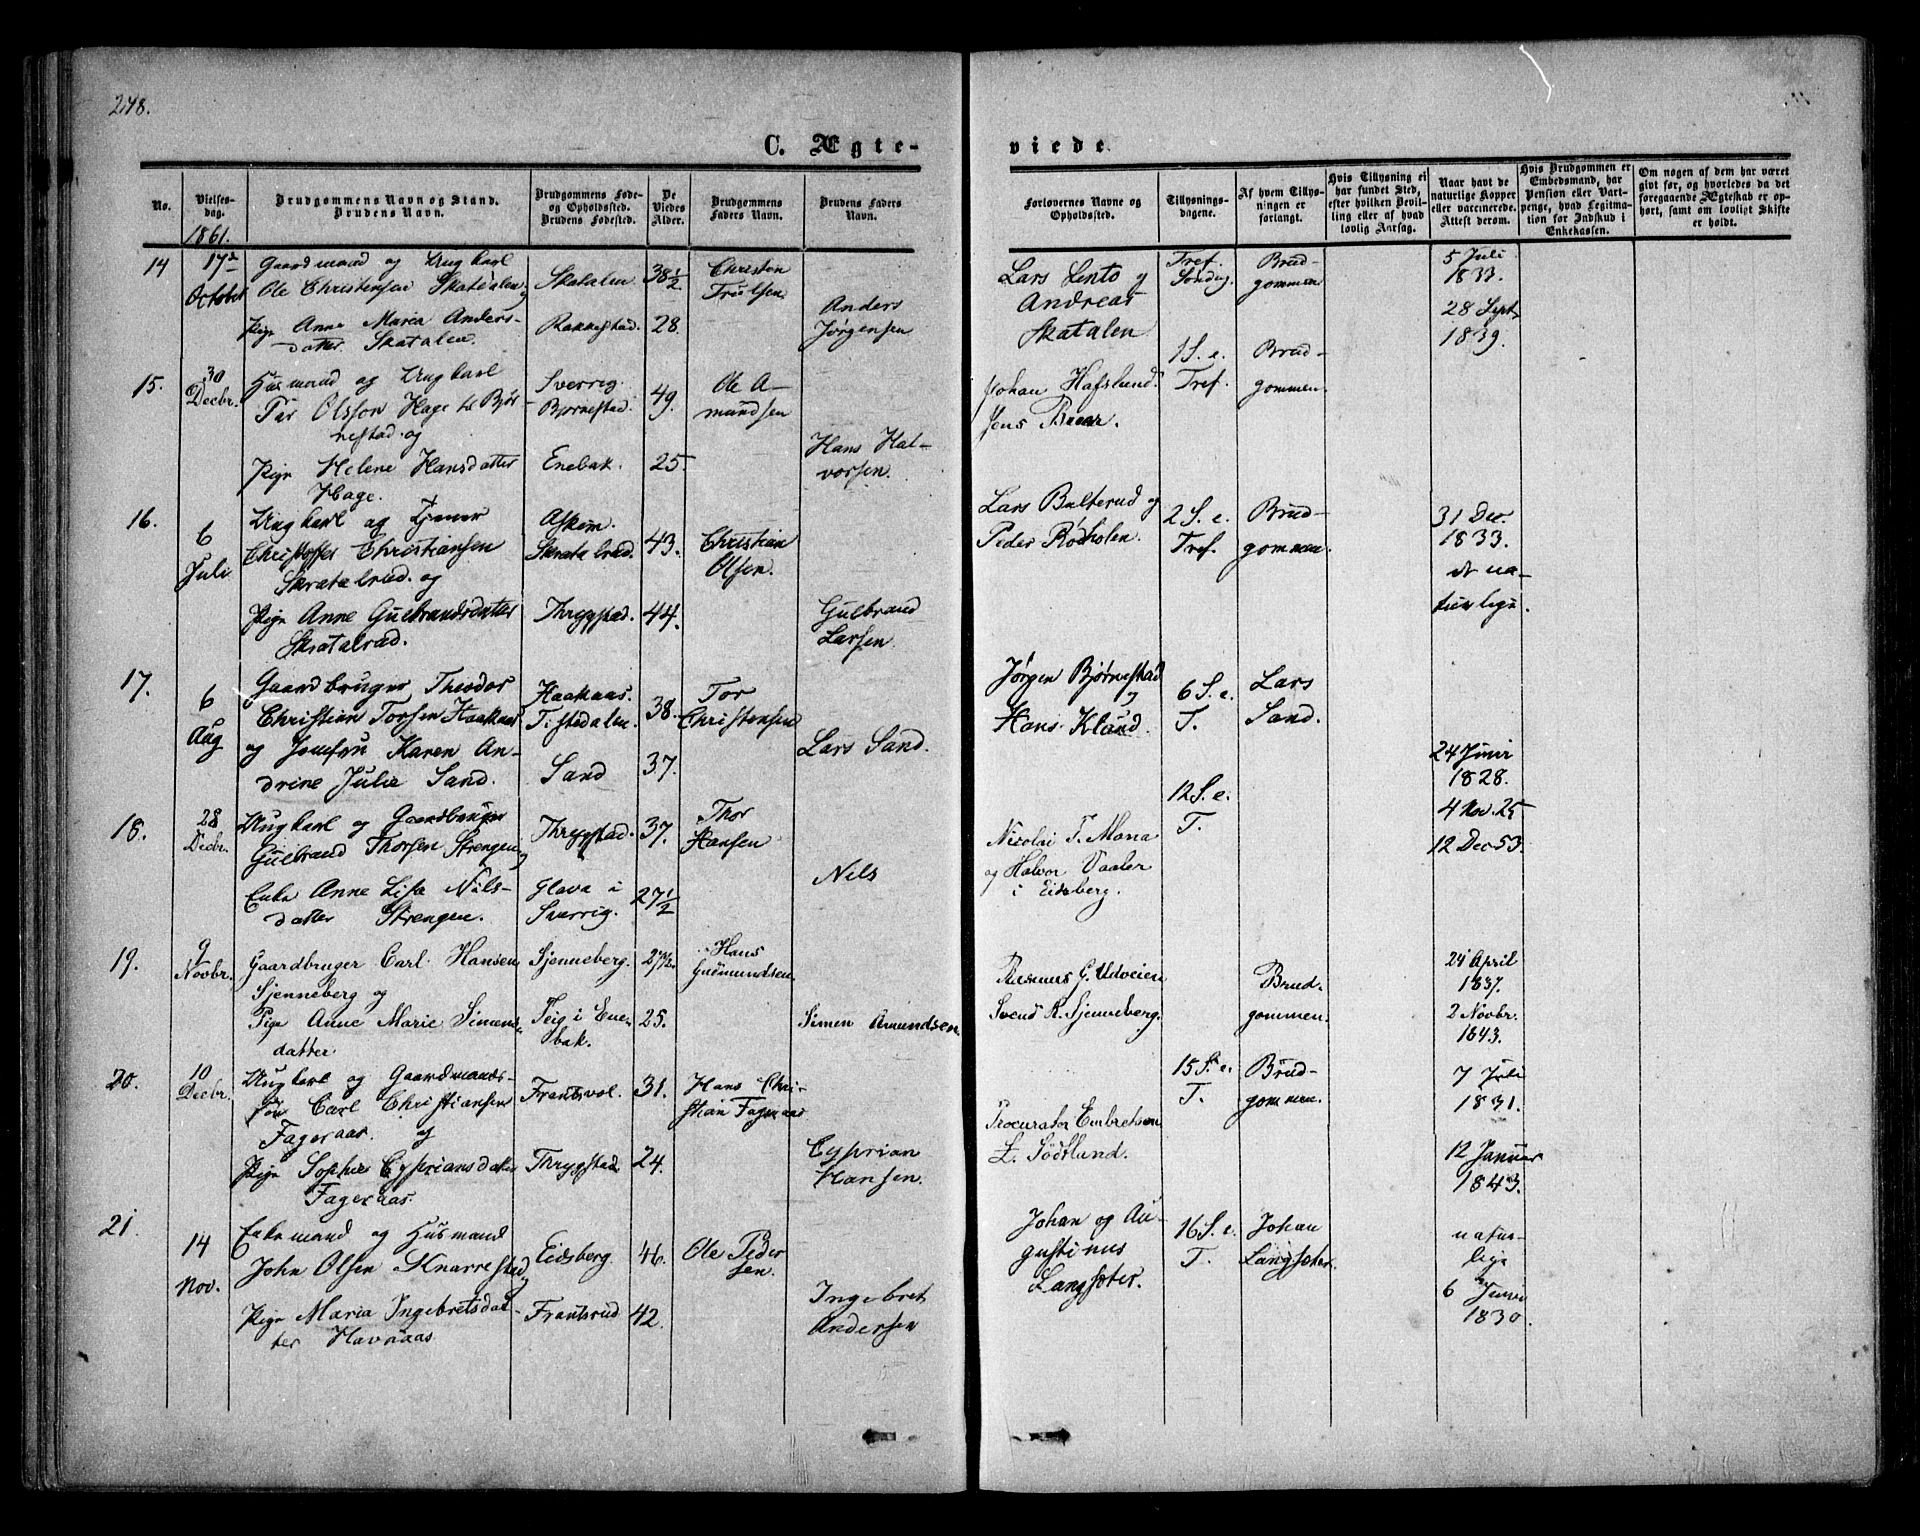 248.
C. Ægte-
viede
No.
Vielses-
dag.
1861.
Brudgommens Navn og Stand.
Brudens Navn.
Brudgommens Føde-
og Opholdssted.
Brudens Fødested.
De
Viedes
Alder.
Brudgommens
Faders Navn.
Brudens Faders
Navn.
Forlovernes Navne og
Opholdssted.
Tillysnings-
dagene.
Af hvem Tillys-
ningen er
forlangt.
Hvis Tillysning ei
har fundet Sted,
efter hvilken Bevil-
ling eller af hvad
lovlig Aarsag.
Naar havt de
naturlige Kopper
eller vaccinerede.
Attest derom.
Hvis Brudgommen er
Embedsmand, har
Pension eller Vart-
penge, hvad Legitma-
tion for Indskud i
Enkekassen.
Om nogen af dem har været
gift før, og hvorledes da det
foregaaende Ægteskab er op-
hørt, samt om lovligt Skifte
er holdt.
14
17de
October
Gaardmand og Ungkarl
Ole Christensen Skatalen
Pige Anne Maria Anders-
datter Skatalen.
Skatalen
Rakkestad.
38 1/2
28.
Christen
Truelsen
Anders
Jørgensen
Lars Lento og
Andreas
Skatalen
Tref.
Søndag.
Brud-
gommen
5 Juli
1833.
28 Sept.
1839.
15.
30
Decbr.
Husmand og Ungkarl
Per Olsson Hage Bjør-
nestad og
Pige Helene Hansdatter
Hage.
Sverrig.
Bjørnestad.
Enebak.
49.
25
Ole A-
mundsen
Hans Hal-
vorsen.
Johan Hafslund.
Jens
1 S. e.
Tref.
Brud-
gommen.
16.
6
Juli
Ungkarl og
Christoffer Christiansen
Skratalrud og
Pige Anne Gulbrandsdatter
Skratalrud.
Askim.
Skratalrud.
Thrygstad.
43.
44.
Christian
Olsen.
Gulbrand
Larsen
Lars Bulterud og
Peder
2 S. e.
Tref.
Brud-
gommen.
31 Dec.
1833.
de na-
turlige.
17.
6
Aug
Gaardbruger Theodor
Christian Torsen Haakaas
og Jomfru Karen An-
drine Julie Sand.
Haakaas.
Tistedalen.
Sand
38.
37.
Tor
Christensen
Lars Sand.
Jørgen Bjørnestad
og
Hans Klund.
6 S. e.
T.
Lars
Sand.
24 Juni
1828.
18.
28
Decbr.
Ungkarl og Gaardbruger
Gulbrand Thorsen Strengen
Enke Anne Lisa Nils-
datter Strengen.
Thrygstad.
Glava i
Sverrig.
37.
27 1/2
Thor
Hansen
Nils
Nicolai T. Mona
og Halvor Vaaler
i Eidsberg.
12 S. e.
T.
4 Nov. 25
12 Dec 53.
19.
9
Novbr.
Gaardbruger Carl Hansen
Sjenneberg og
Pige Anne Marie Simens-
datter
Sjenneberg.
Teig i Ene-
bak.
27 1/2.
25.
Hans
Gudmundsen
Simen Amundsen.
Rasmus G. Udveien
Svend R. Sjenneberg.
Brud-
gommen.
24 April
1837.
2 Novbr.
1843.
20.
10
Decbr.
Ungkarl og Gaardmands-
søn Carl Christiansen
Fageraas. og
Pige Sophie Cypriansdatter
Fageraas.
Frantsvol.
Thrygstad
31.
24.
Hans Chri-
stian Fageraas
Cyprian
Hansen.
Procurator Embretsen
L. Södtlund.
15 S. e.
T.
Brud-
gommen.
7 Juli
1831.
12 Januar
1843.
21.
14
Nov.
Enkemand og Husmand
John Olsen Knarrestad
Pige Maria Ingebretsdat-
ter Havnaas
Eidsberg
Frantsrud
46.
42.
Ole Peder
sen.
Ingebret
Andersen
Johan og Au-
gustinus
Langsæter.
16 S. e.
T.
Johan
Langsæter.
natur-
lige
6 Juni
1830.